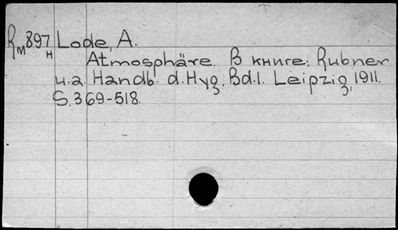 RM897H Lode, A.
Atmosphäre. В книге: Rubner
u.a. Handb. d. Hyg. Bd.1. Leipzig, 1911.
S. 369-518.